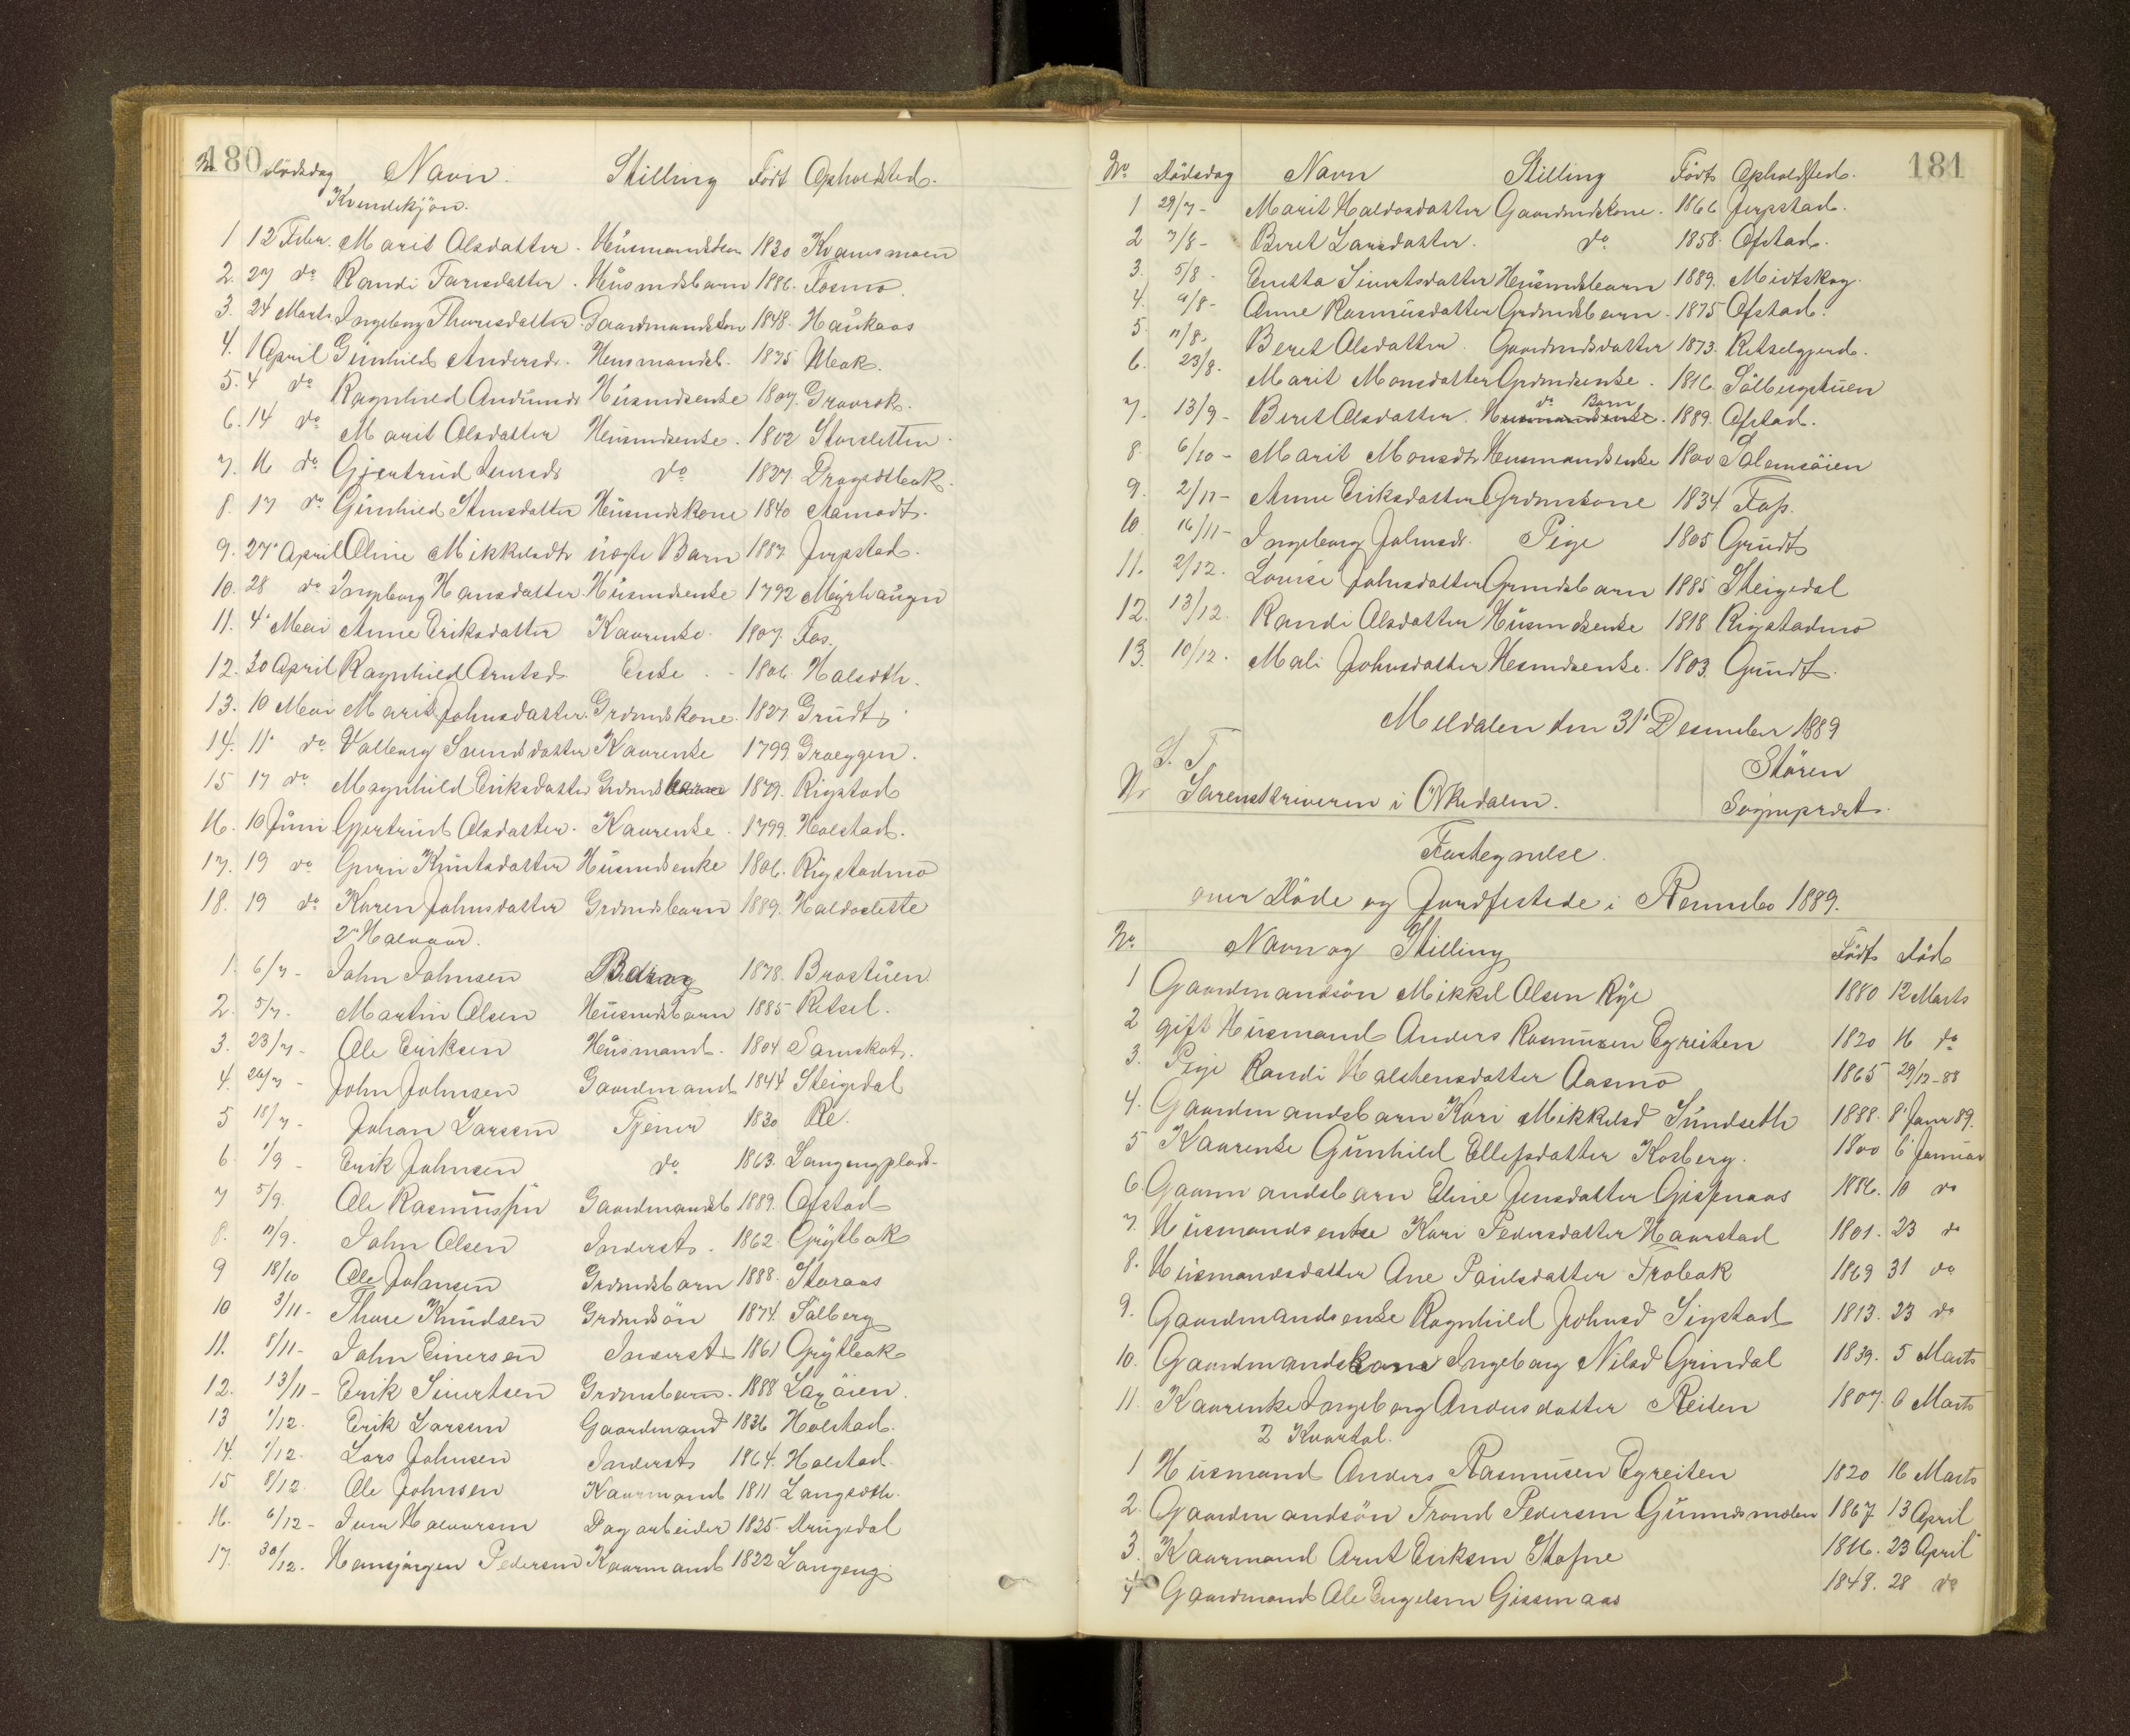 180
No Dödsdag Navn. Stilling Födt Opholdsted.
Kvindekjön.
1 12 Febr. Marit Olsdatter. Husmandsken 1830 Kvamsmoen
2. 27 do Randi Farsdatter. Husmdsbarn 1886. Fosmo.
3. 24 Marts Ingeborg Thoresdatter Gaardmandskon 1848. Haukaas
4. 1 April Gunhild Andersdr. Husmandsb. 1875
5. 4 do Ragnhild Husmdsenke 1807.
6. 14 do Marit Olsdatter Husmdsenke. 1802 Storsletten.
7. 16 do Gjertrud do 1837
8. 17 do Gunhild Husmdskone 1840 Aamodt.
9. 27 April Oline Mikkelsdtr uægte Barn 1887 Jerpstad.
10. 28 do Ingeborg Hansdatter Husmdsenke 1792 Myrhaugn
11. 4 Mai Anne Eriksdatter Kaarenke. 1807. Fos.
12. 30 April Ragnhild Arntsd. Enke. - 1806 Halseth.
13. 10 Mai Marit Johnsdatter. Grdmdskone. 1827 Grudt
14. 11 do Valborg Kaarenke 1799 Græggen.
15 17 do Magnhild Eriksdatter Grdmdsbarn 1879. Rigstad
16. 10 Juni Gjertrud Olsdatter. Kaarenke. 1799. Holstad.
17. 19 do Guri Knutsdatter Husmdsenke 1806. Rigstadmo
18. 19 do Karen Johnsdatter Grdmdsbarn 1889. Haldoslette
2 Halvaar.
1. 6/7 - John Johnsen 1878. Brostuen
2. 5/7. Martin Olsen Husmdsbarn 1885 Retsel.
3. 23/7 - Ole Eriksen Husmand. 1804 Samskot.
4. 26/7 - John Johnsen Gaardmand 1844 Steigedal
5 18/7 - Johan Larsen Tjener 1830 Re.
6. 1/9 - Erik Johnsen do 1863. Langengplads
7 5/9. Ole Rasmussen Gaardmandsb 1889. Ofstad
8. 12/9. John Olsen Inderst. 1862 Grytbak
9 18/10 Ole Johnsen Grdmdsbarn 1888. Storaas
10 3/11 - Thore Knudsen Grdmdsön 1874. Solberg
11. 8/11 - John Einersen Inderst 1861 Grytbak
12. 13/11 - Erik Sivertsen Grdmsbarn. 1888 Laxöien.
13 1/12. Erik Larsen Gaardmand 1836 Holstad.
14. 1/12. Lars Johnsen Inderst 1864. Holstad.
15 8/12. Ole Johnsen Kaarmand 1811 Langseth.
16. 6/12 - Iver Halvorsen Dagarbeider 1825. Drugudal
17. 30/12. Hansjørgen Pedersen Kaarmand 1822 Langeng
181
No Dödsdag Navn Stilling Födt Opholdsted.
1 29/7 - Marit Haldosdatter Gaardmdskone. 1866 Jerpstad.
2 7/8 - Beret Larsdatter. do 1858. Ofstad.
3. 5/8 - Sivertsdatter Husmdsbarn 1889. Midtskog.
4. 9/8 - Anne Rasmusdatter Grdmdsbarn. 1875 Ofstad.
5 11/8. Beret Olsdatter. Gaardmdsdatter 1873. Retselgjerd.
6. 23/8. Marit Monsdatter Grdmdsenke. 1816. Solbergstuen
7. 13/9 - Beret Olsdatter. Husmandsenke do Barn. 1889. Ofstad.
8. 6/10 - Marit Monsdtr Husmandsenke 1800
9. 2/11 - Anne Eriksdatter Grdmskone 1834. Foss.
10 16/11 - Ingeborg Johnsdr. Pige 1805 Grudt
11. 2/12. Lovise Johnsdatter Grmdsbarn 1885 Steigedal
12. 13/12. Randi Olsdatter Husmdsenke 1818 Rigstadmo
13. 10/12. Mali Johnsdatter Husmdsenke. 1803. Grudt.
Meldalen den 31 Desember 1889
S. T. Stören
Hr Sorenskriveren i Orkedalen. Sognepræst.
Fortegnelse
over Döde og Jordfestede i Rennebo 1889.
No Navn og Stilling Födt Död
1 Gaardmandsön Mikkel Olsen Rye 1880 12 Marts
2 gift Husmand Anders Rasmusen Egreiten 1820 16 do
3. Pige Randi Halstensdatter Aasmo 1865 29/12-88
4. Gaardmandsbarn Kari Mikkelsd Sundseth 1888. 8 Janr 89.
5 Kaarenke Gunhild Ellefsdatter Kosberg. 1800 6 Januar
6. Gaarmandsbarn Eline Jensdatter Gisnaas 1886. 10 do
7. Husmandsenke Kari Pedersdatter Haarstad 1801. 23 do
8. Husmandsdatter Ane Paulsdatter Frobak 1869 31 do
9. Gaardmandsenke Ragnhild Johnsd Sigstad 1813. 23 do
10. Gaardmandskone Ingeborg Nilsd Grindal 1839. 5 Marts
11. Kaarenke Ingeborg Andersdatter Reiten 1807. 6 Marts
2 Kvartal.
1 Husmand Anders Rasmusen Egreiten 1820 16 Marts
2. Gaardmandsön Trond Pedersen Gunnesmælen 1867 13 April
3. Kaarmand Arnt Eriksen Stafne 1816. 23 April
4 Gaardmand Ole Engelsen Gissnaas 1848. 28 do